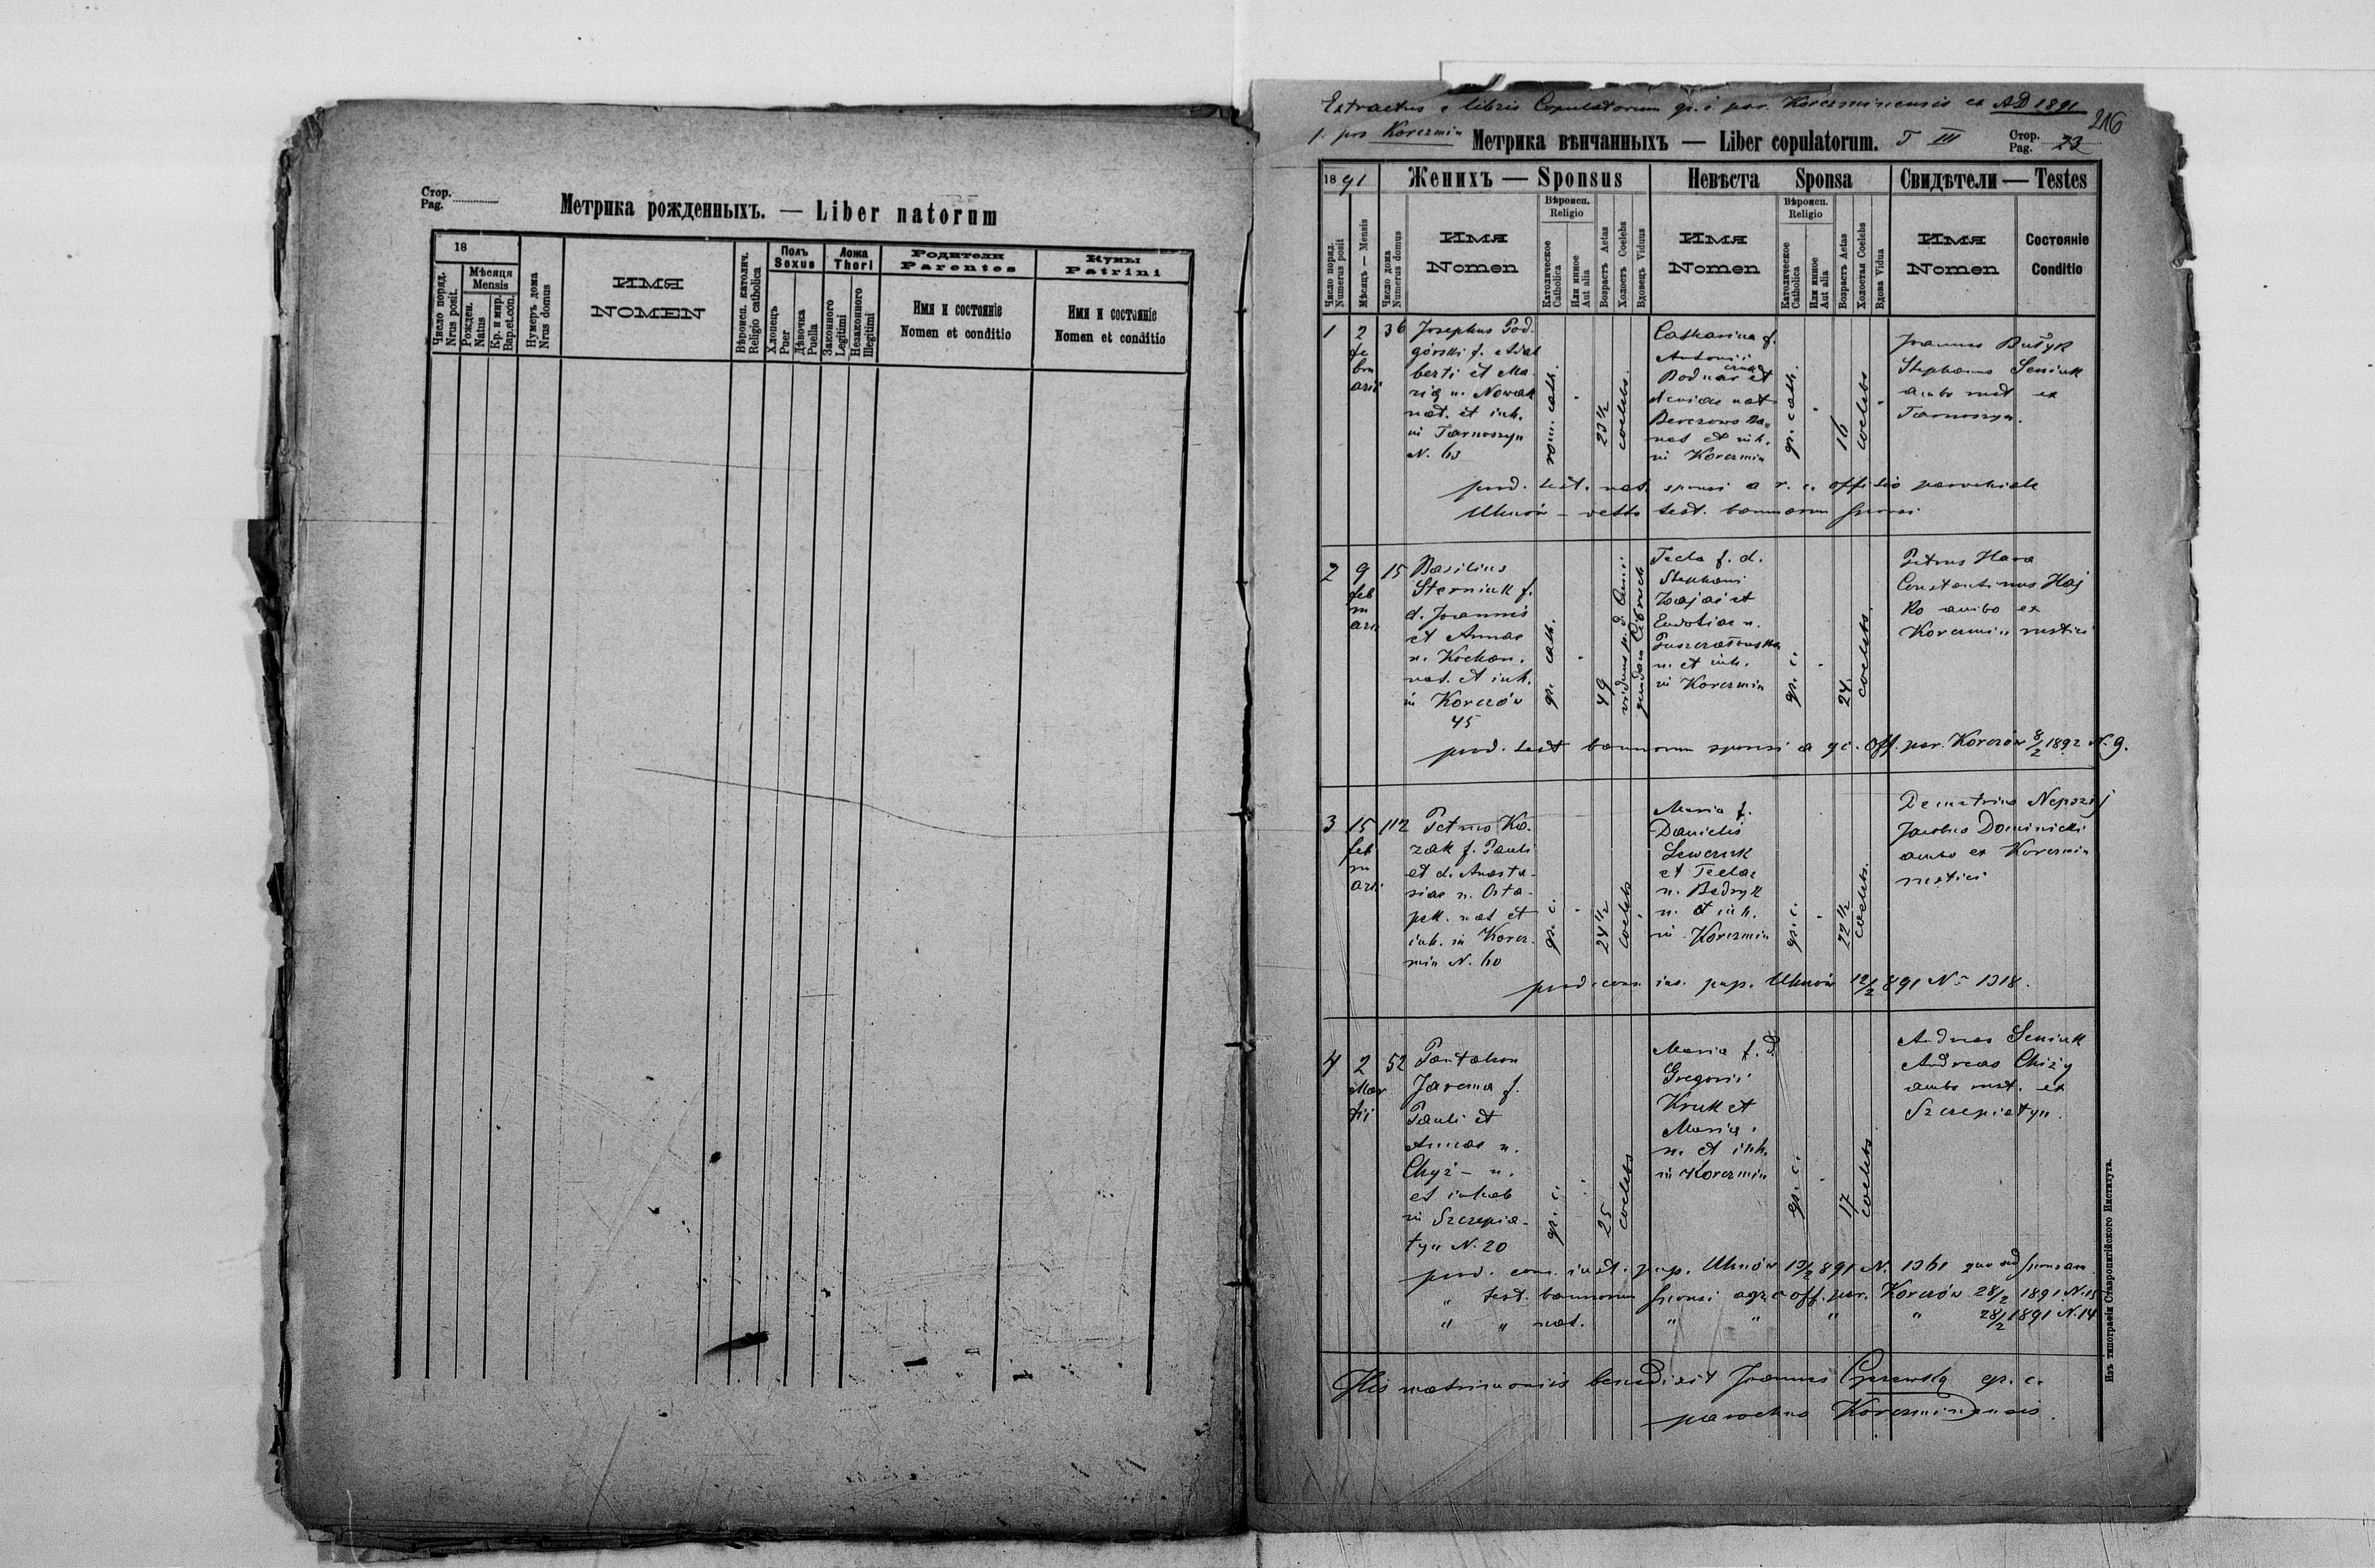 Стор.
Pag.
Метрика рожденныхъ. — Liber natorum
18
Число поряд.
Nrus posit.
Мѣсяця
Mensis
Рожден.
Natus
Кр. и мир.
Bap.et.con.
Нумеръ дома
Nrus domus
ИМЯ
NOMEN
Вѣроисп. католич.
Religio catholica
Полъ
Sexus
Хлопецъ
Puer
Дѣвочка
Puella
Ложа
Thori
Законного
Legitimi
Незаконного
Illegitimi
Родители
Parentes
Имя и состояніе
Nomen et conditio
Кумы
Patrini
Имя и состояніе
Nomen et conditio
Extractus e libris Copulatorum gr. c. par. Korczminensis ex AD 1891
216
1. pro Korczmin
Метрика вѣнчанныхъ — Liber copulatorum. T III
Стор.
Pag. 23
1891
Женихъ — Sponsus
Невѣста Sponsa
Свидѣтели — Testes
Число поряд.
Numerus posit
Мѣсяцъ — Mensis
Число дома
Numerus domus
Имя
Nomen
Вѣроисп.
Religio
Католическое
Catholica
Или инное
Aut alia
Возрастъ Aetas
Холостъ Coelebs
Вдовецъ Viduus
Имя
Nomen
Вѣроисп.
Religio
Католическое
Catholica
Или инное
Aut alia
Возрастъ Aetas
Холостая Coelebs
Вдова Vidua
Имя
Nomen
Состояніе
Conditio
1
2
fe
bru
arii
36
Josephus Pod-
górski f. Adal
berti et Ma-
ria n. Nowak
nat. et inh.
in Tarnoszyn
N. 63
rom. cath.
23 1/2
coelebs.
Catharina f.
Antonii
Bodnarczuk et
nat
nat et inh.
in Korczmin
gr. cath.
16
coelebs
Joannes
Stephanus Seniuk
ambo rust ex
Tarnoszyn.
prod. test. nat. sponsi a r. c. officio parochiale
Uhnów – test. bannorum sponsi
2
9
feb
ru
arii
15
Basilius
Sterniuk f.
d. Joannis
et Annae
n. Kochan.
nat. et inh.
in Korczów
45
gr. cath.
49
viduus p. d.
Tecla f. d.
Stephani
Zajac et
Eudociae n.
n. et inh.
in Korczmin
gr. c.
24.
coelebs.
Petrus Hava
Constantinus Haj
ko ambo ex
Korczmin rustici
prod. test bannorum sponsi a gr. c. off. par. Korczów 8/2 1892 N. 9.
3
15
feb
ru
arii
112
Petrus Ko-
zak f. Pauli
et d. Anasta-
siae n. Osta-
pek. nat et
inh. in Korcz-
min N. 60
gr. c.
24 1/2
coelebs
Maria f.
Danielis
Lewczuk
et Teclae
n. Bedryk
n. et inh.
in Korczmin
gr. c.
22 1/2
coelebs.
Demetrius Nepszij
Jacobus Dominicki
ambo ex Korczmin
rustici
prod. cons. ins. pup. Uhnów 12/2 891 N– 1318.
4
2
Mar
tii
52
Pantaleon
Jarema f.
Pauli et
Annae n.
Chyż – n.
et inhab
in Szczepia-
tyn N. 20
gr. c.
25
coelebs
Maria f. d
Gregorii
Kruk et
Maria.
n. et inh.
in Korczmin
gr. c.
17
coelebs
Andreas Seniuk
Andreas Chizy
ambo rust. ex
Szczepiatyn.
prod. cons. inst. pup. Uhnów 13/2 891 N. 1361 quoad sponsam
" test. bannorum sponsi a gr. c off. par. Korczów 28/2 1891 N. 15
" " nat. " " " " 28/2 1891 N. 14
His matrimoniis benedixit Joannes gr. c.
parochus Korczminensis.
Изъ типографіи Ставропигійского Института.